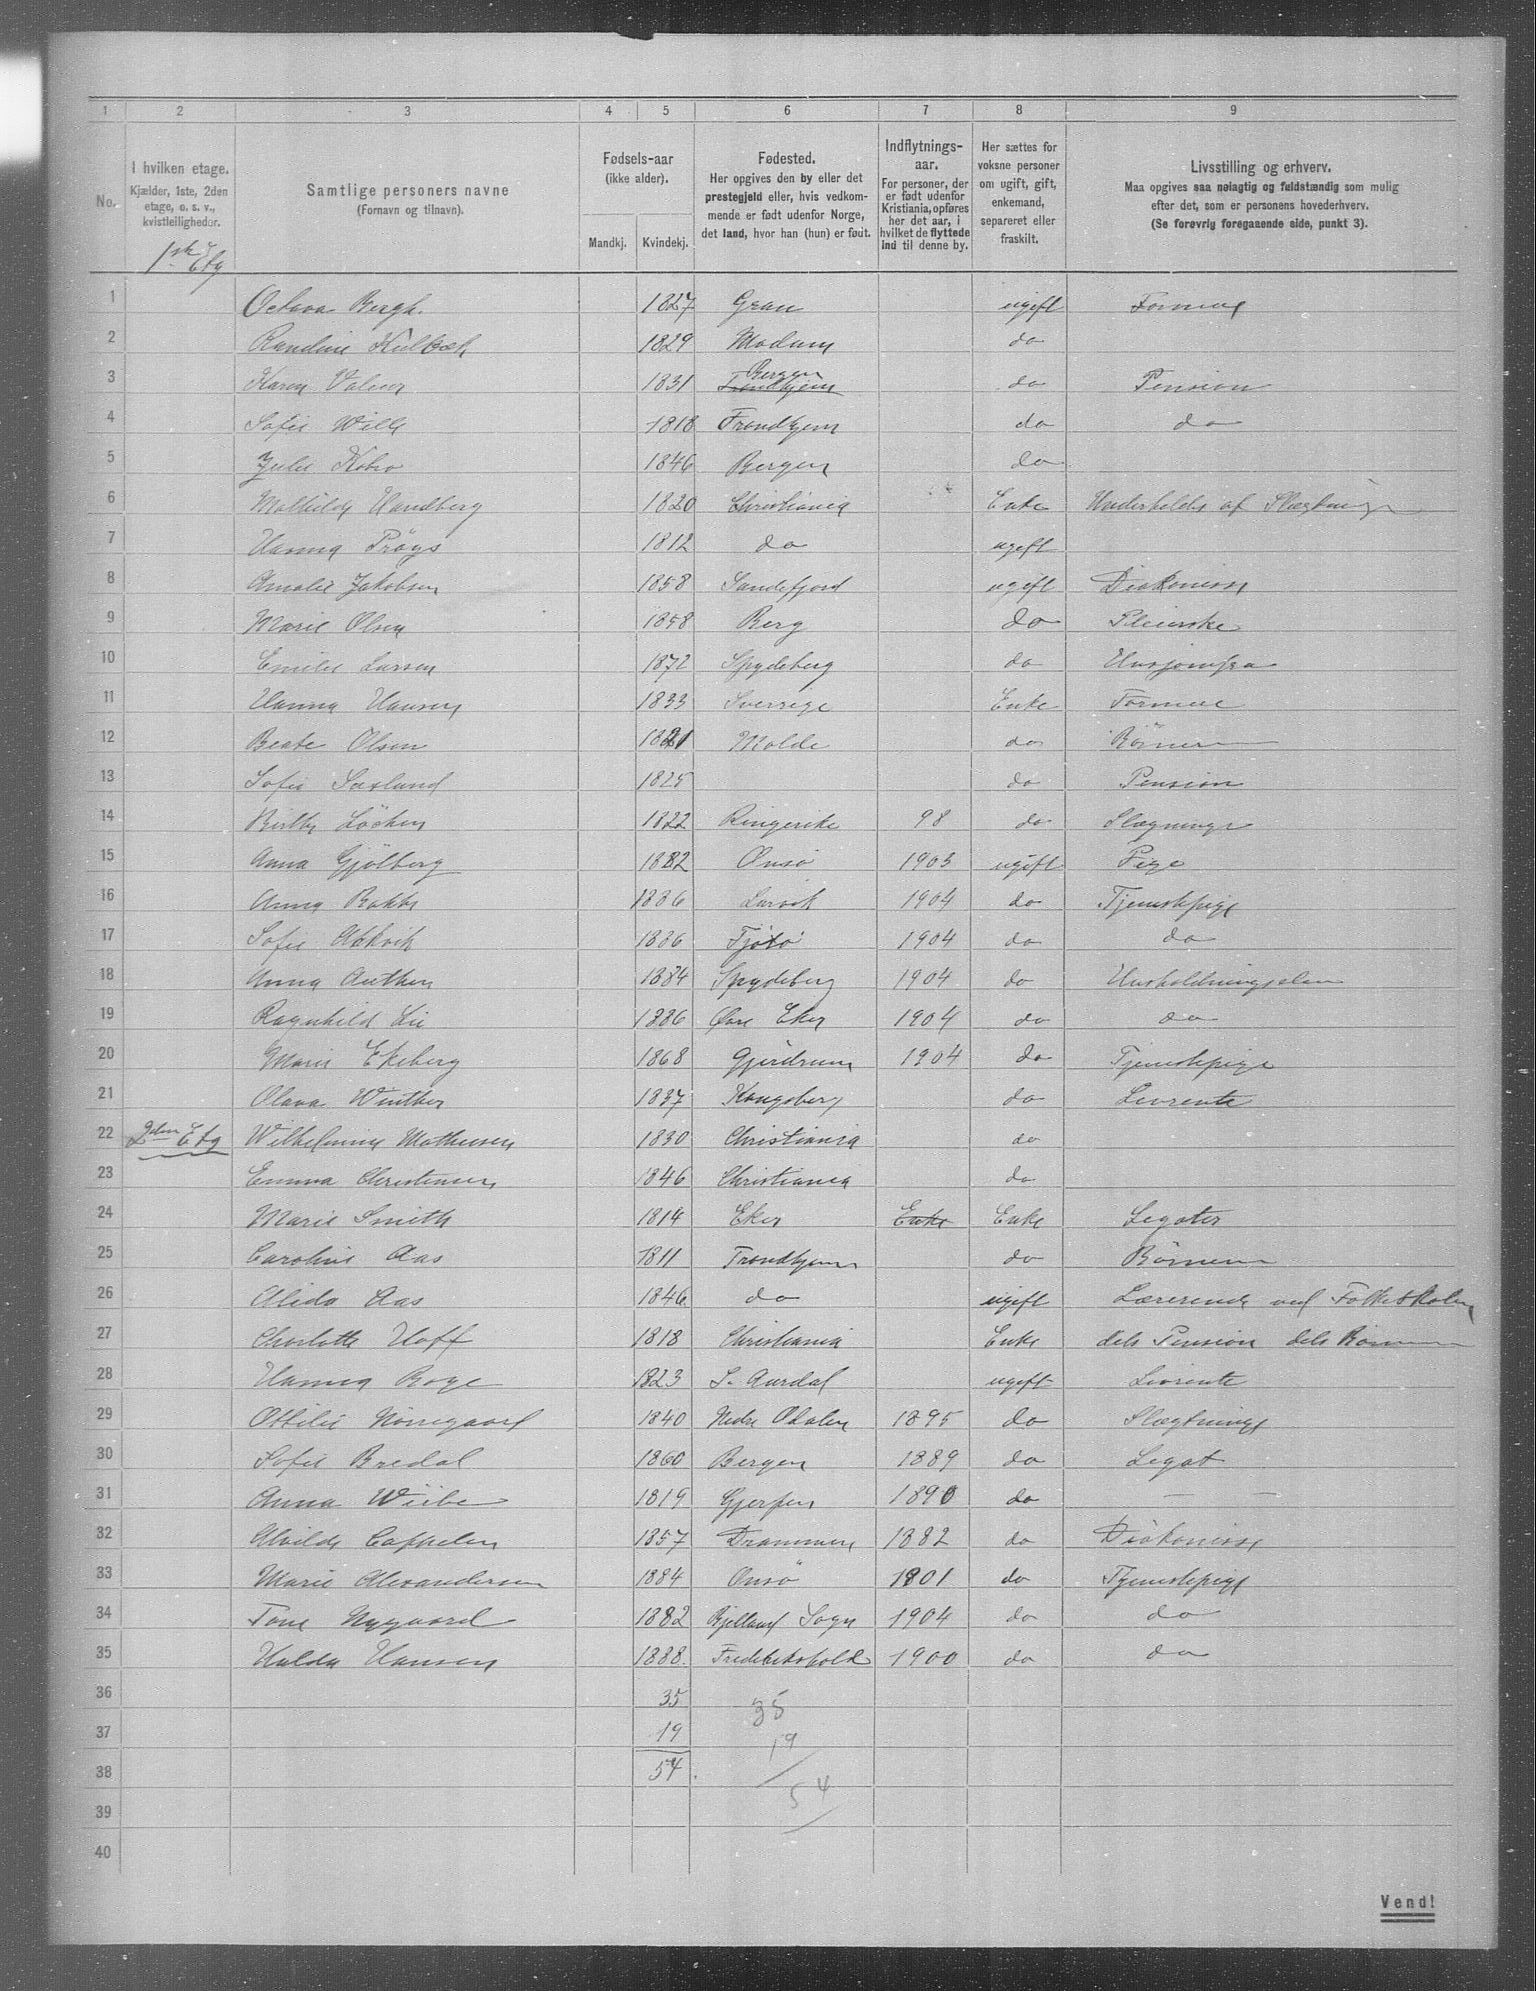 1 2 3 4 5 6 7 8 9
No. I hvilken etage. Kjælder, 1ste, 2den etage, o. s. v., kvistleiligheder. Samtlige personers navne (Fornavn og tilnavn). Fødsels-aar (ikke alder). Mandkj. Kvindekj. Fødested. Her opgives den by eller det prestegjeld eller, hvis vedkommende er født udenfor Norge, det land, hvor han (hun) er født. Indflytnings-aar. For personer, der er født udenfor Kristiania, opføres her det aar, i hvilket de flyttede ind til denne by. Her sættes for voksne personer om ugift, gift, enkemand, separeret eller fraskilt. Livsstilling og erhverv. Maa opgives saa nøiagtig og fuldstændig som mulig efter det, som er personens hovederhverv. (Se forøvrig foregaaende side, punkt 3).
1ste Etg
1 Octava Bergh. 1827 Gran ugift Formue
2 Randine 1829 Modum do
3 Karen 1831 Trondhjem Bergen do Pension
4 Sofie Wille 1818 Trondhjem do do
5 Julie 1846 Bergen do
6 Mathilde Handberg 1820 Christiania Enke Underholdes af
7 Hanna Prøys 1812 do ugift
8 Amalie Jakobsen 1858 Sandefjord ugift Diakonisse
9 Marie Olsen 1858 Berg do Pleierske
10 Emilie Larsen 1872 Spydeberg do Husjomfru
11 Hanna Hansen 1833 Sverrige Enke Formue
12 Beate Olsen 1821 Molde do Börnene
13 Sofie 1825 do Pension
14 Löchen 1822 Ringerike 98 do Slægninge
15 Anna Gjölberg 1882 Onsö 1903 ugift Pige
16 Anna Bakke 1886 Larvik 1904 do Tjenestepige
17 Sofie 1886 Tjötö 1904 do do
18 Anna 1884 Spydeberg 1904 do Husholdningselev
19 Ragnhild Lie 1886 Øvre Eker 1904 do do
20 Marie Ekeberg 1868 Gjerdrum 1904 do Tjenestepige
21 Olava Winther 1837 Kongsberg do Livrente
22 2den Etg Wilhelmine Mathiesen 1830 Christiania do
23 Emma Christensen 1846 Christiania do
24 Marie Smith 1814 Eker Enke Enke Legater
25 Caroline Aas 1811 Trondhjem do Börnene
26 Alida Aas 1846 do ugift Lærerinde ved Folkeskolen
27 Charlotte Hoff 1818 Christiania Enke dels Pension dels Börnene
28 Hanna 1823 S. Aurdal ugift Livrente
29 Ottilie Nörregaard 1840 Nedre Odalen 1895 do Slægtninge
30 Sofie Bredal 1860 Bergen 1889 do Legat
31 Anna Wiibe 1819 Gjerpen 1890 do — —
32 Alvilde Cappelen 1857 Drammen 1882 do Diakonisse
33 Marie Alexandersen 1884 Onsö 1901 do Tjenestepige
34 Tone Nygaard 1882 1904 do do
35 Hulda Hansen 1888. Fredrikshald 1900 do do
36 35 35
37 19 19
38 54. 54
39
40
Vend!